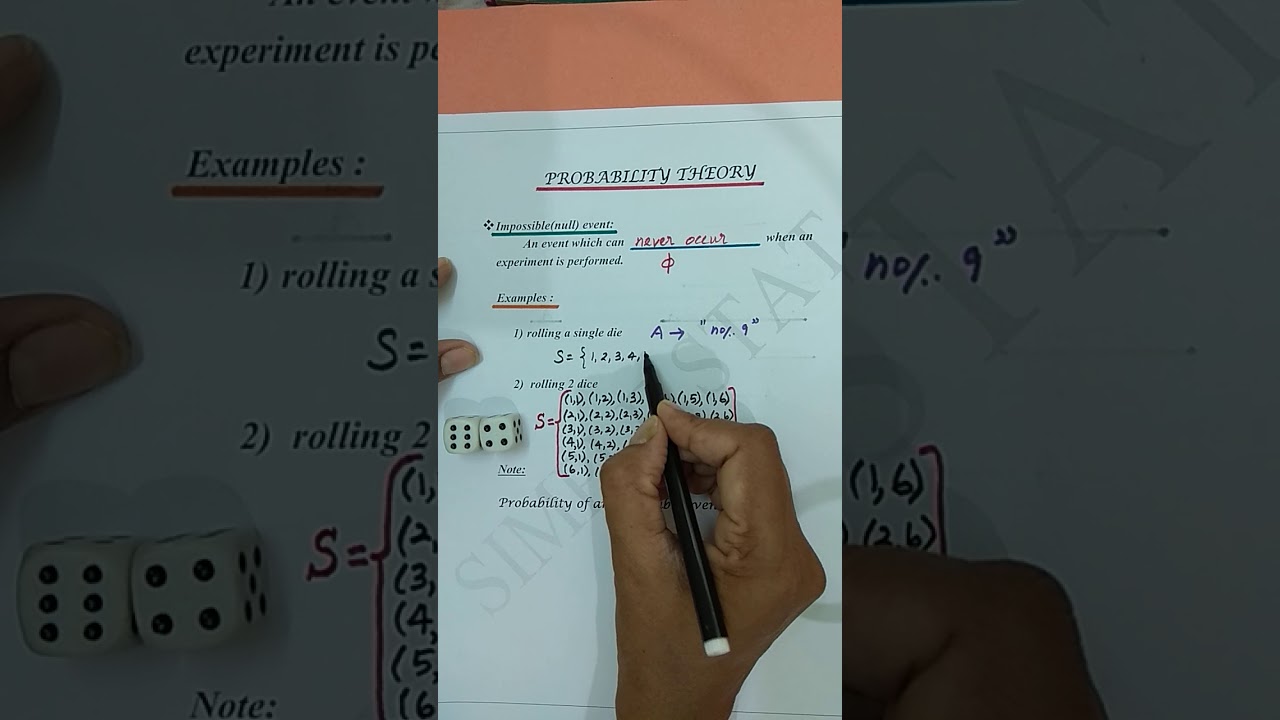 PROBABILITY THEORY
❖Impossible(null) event:
An event which can never occur when an
experiment is performed. ϕ
Examples :
1) rolling a single die A → "no/. 9"
S = { 1, 2, 3, 4,
2) rolling 2 dice
S = { (1,1), (1,2), (1,3), (1,5), (1,6)
(2,1), (2,2), (2,3) (2,6)
(3,1), (3,2),
(4,1), (4,2),
(5,1),
(6,1),
Note:
Probability of
SIMP STAT
experiment is
Examples :
1) rolling a
S =
2) rolling 2
S = {
Note:
no/. 9"
(1,6)
(2,6)